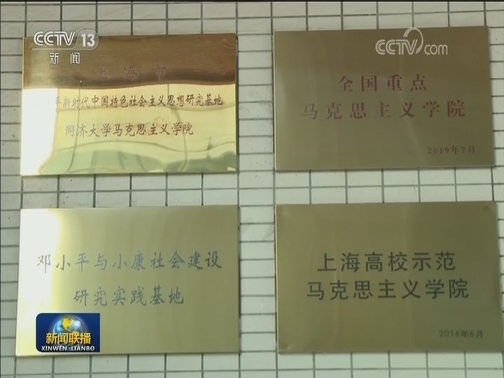 CCTV 13
新闻
CCTV
com
平新时代中国特色社会主义思想研究基地
同济大学马克思主义学院
全国重点
马克思主义学院
2019年7月
邓小平与小康社会建设
研究实践基地
上海高校示范
马克思主义学院
2016年6月
新闻联播
XINWEN LIANBO